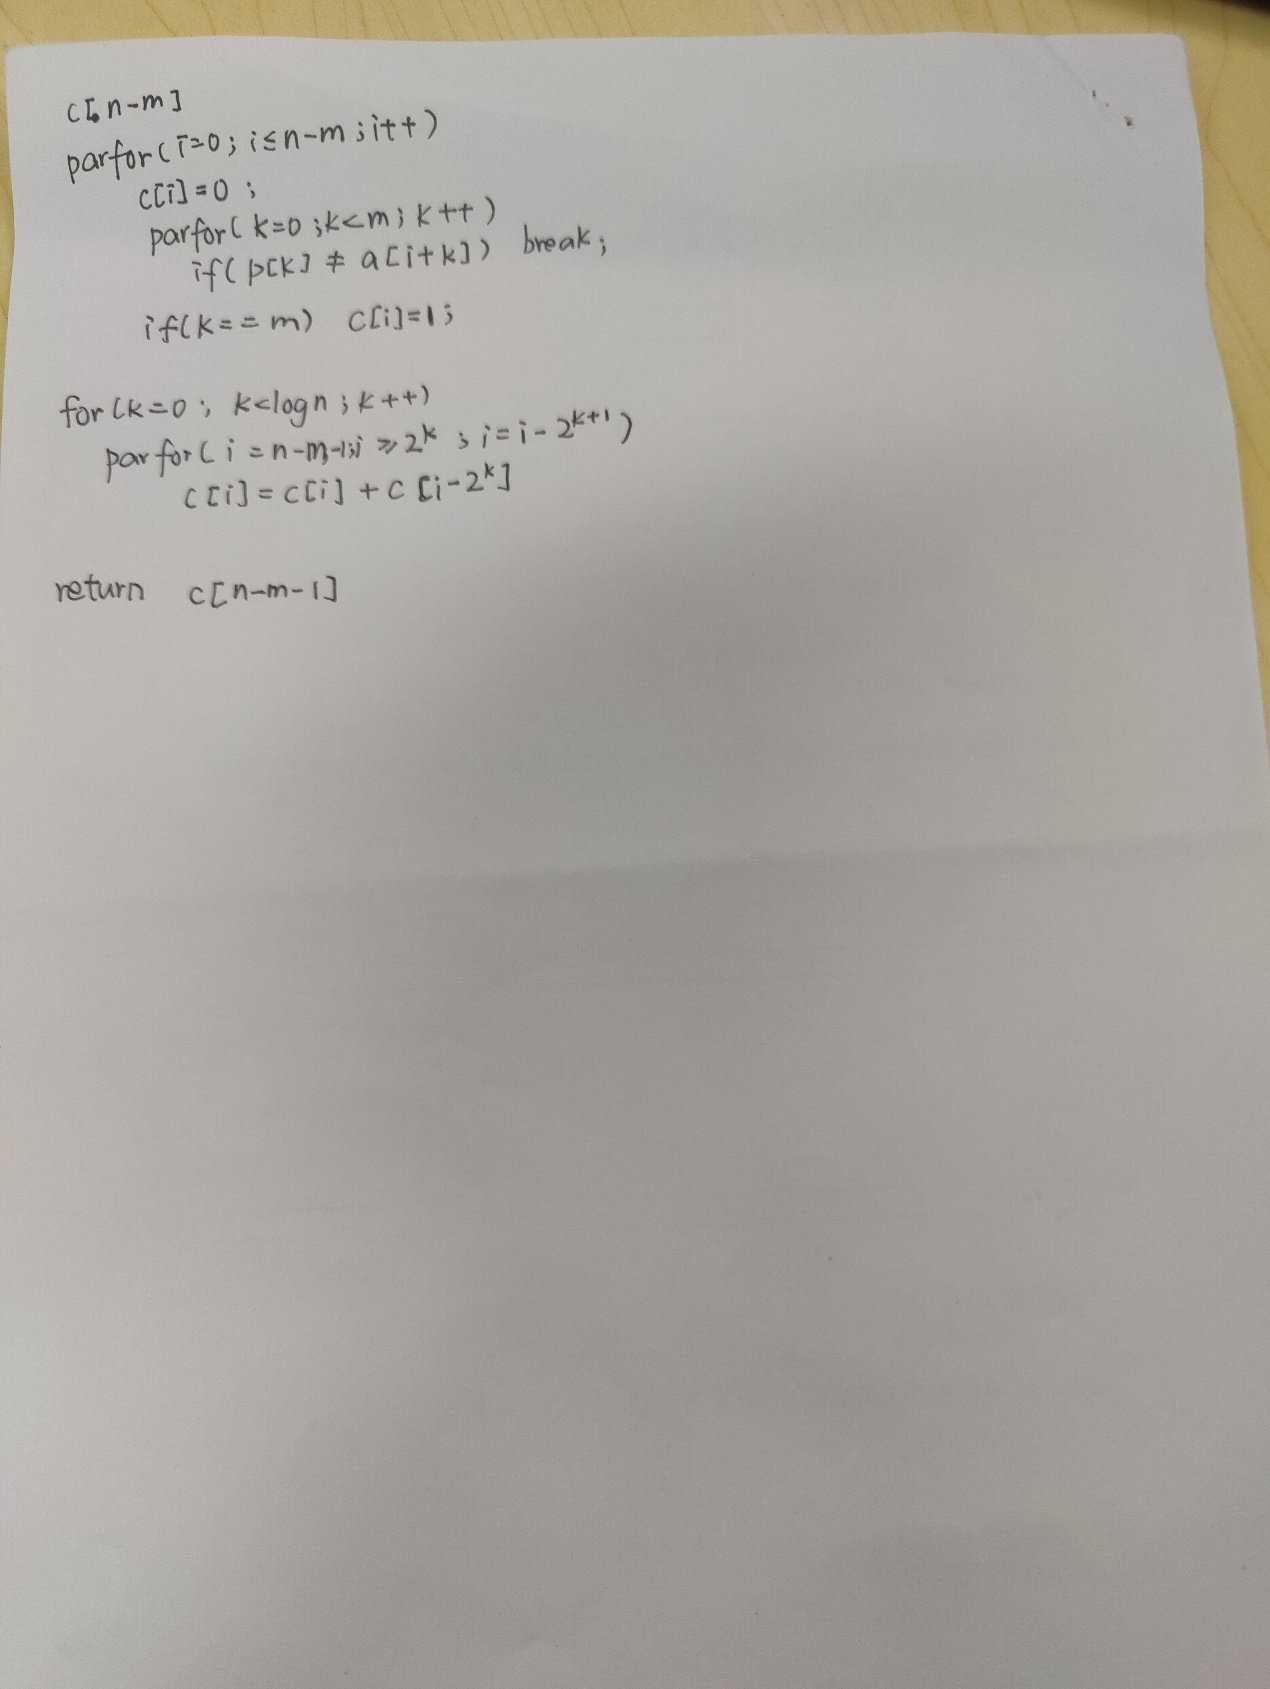 c[n-m]
parfor(i=0; i≤n-m; i++)
c[i]=0;
parfor(k=0; k<m; k++)
if(p[k] ≠ a[i+k]) break;
if(k==m) c[i]=1;
for(k=0; k<logn; k++)
parfor(i=n-m-1; i≥2^k; i=i-2^{k+1})
c[i]=c[i]+c[i-2^k]
return c[n-m-1]